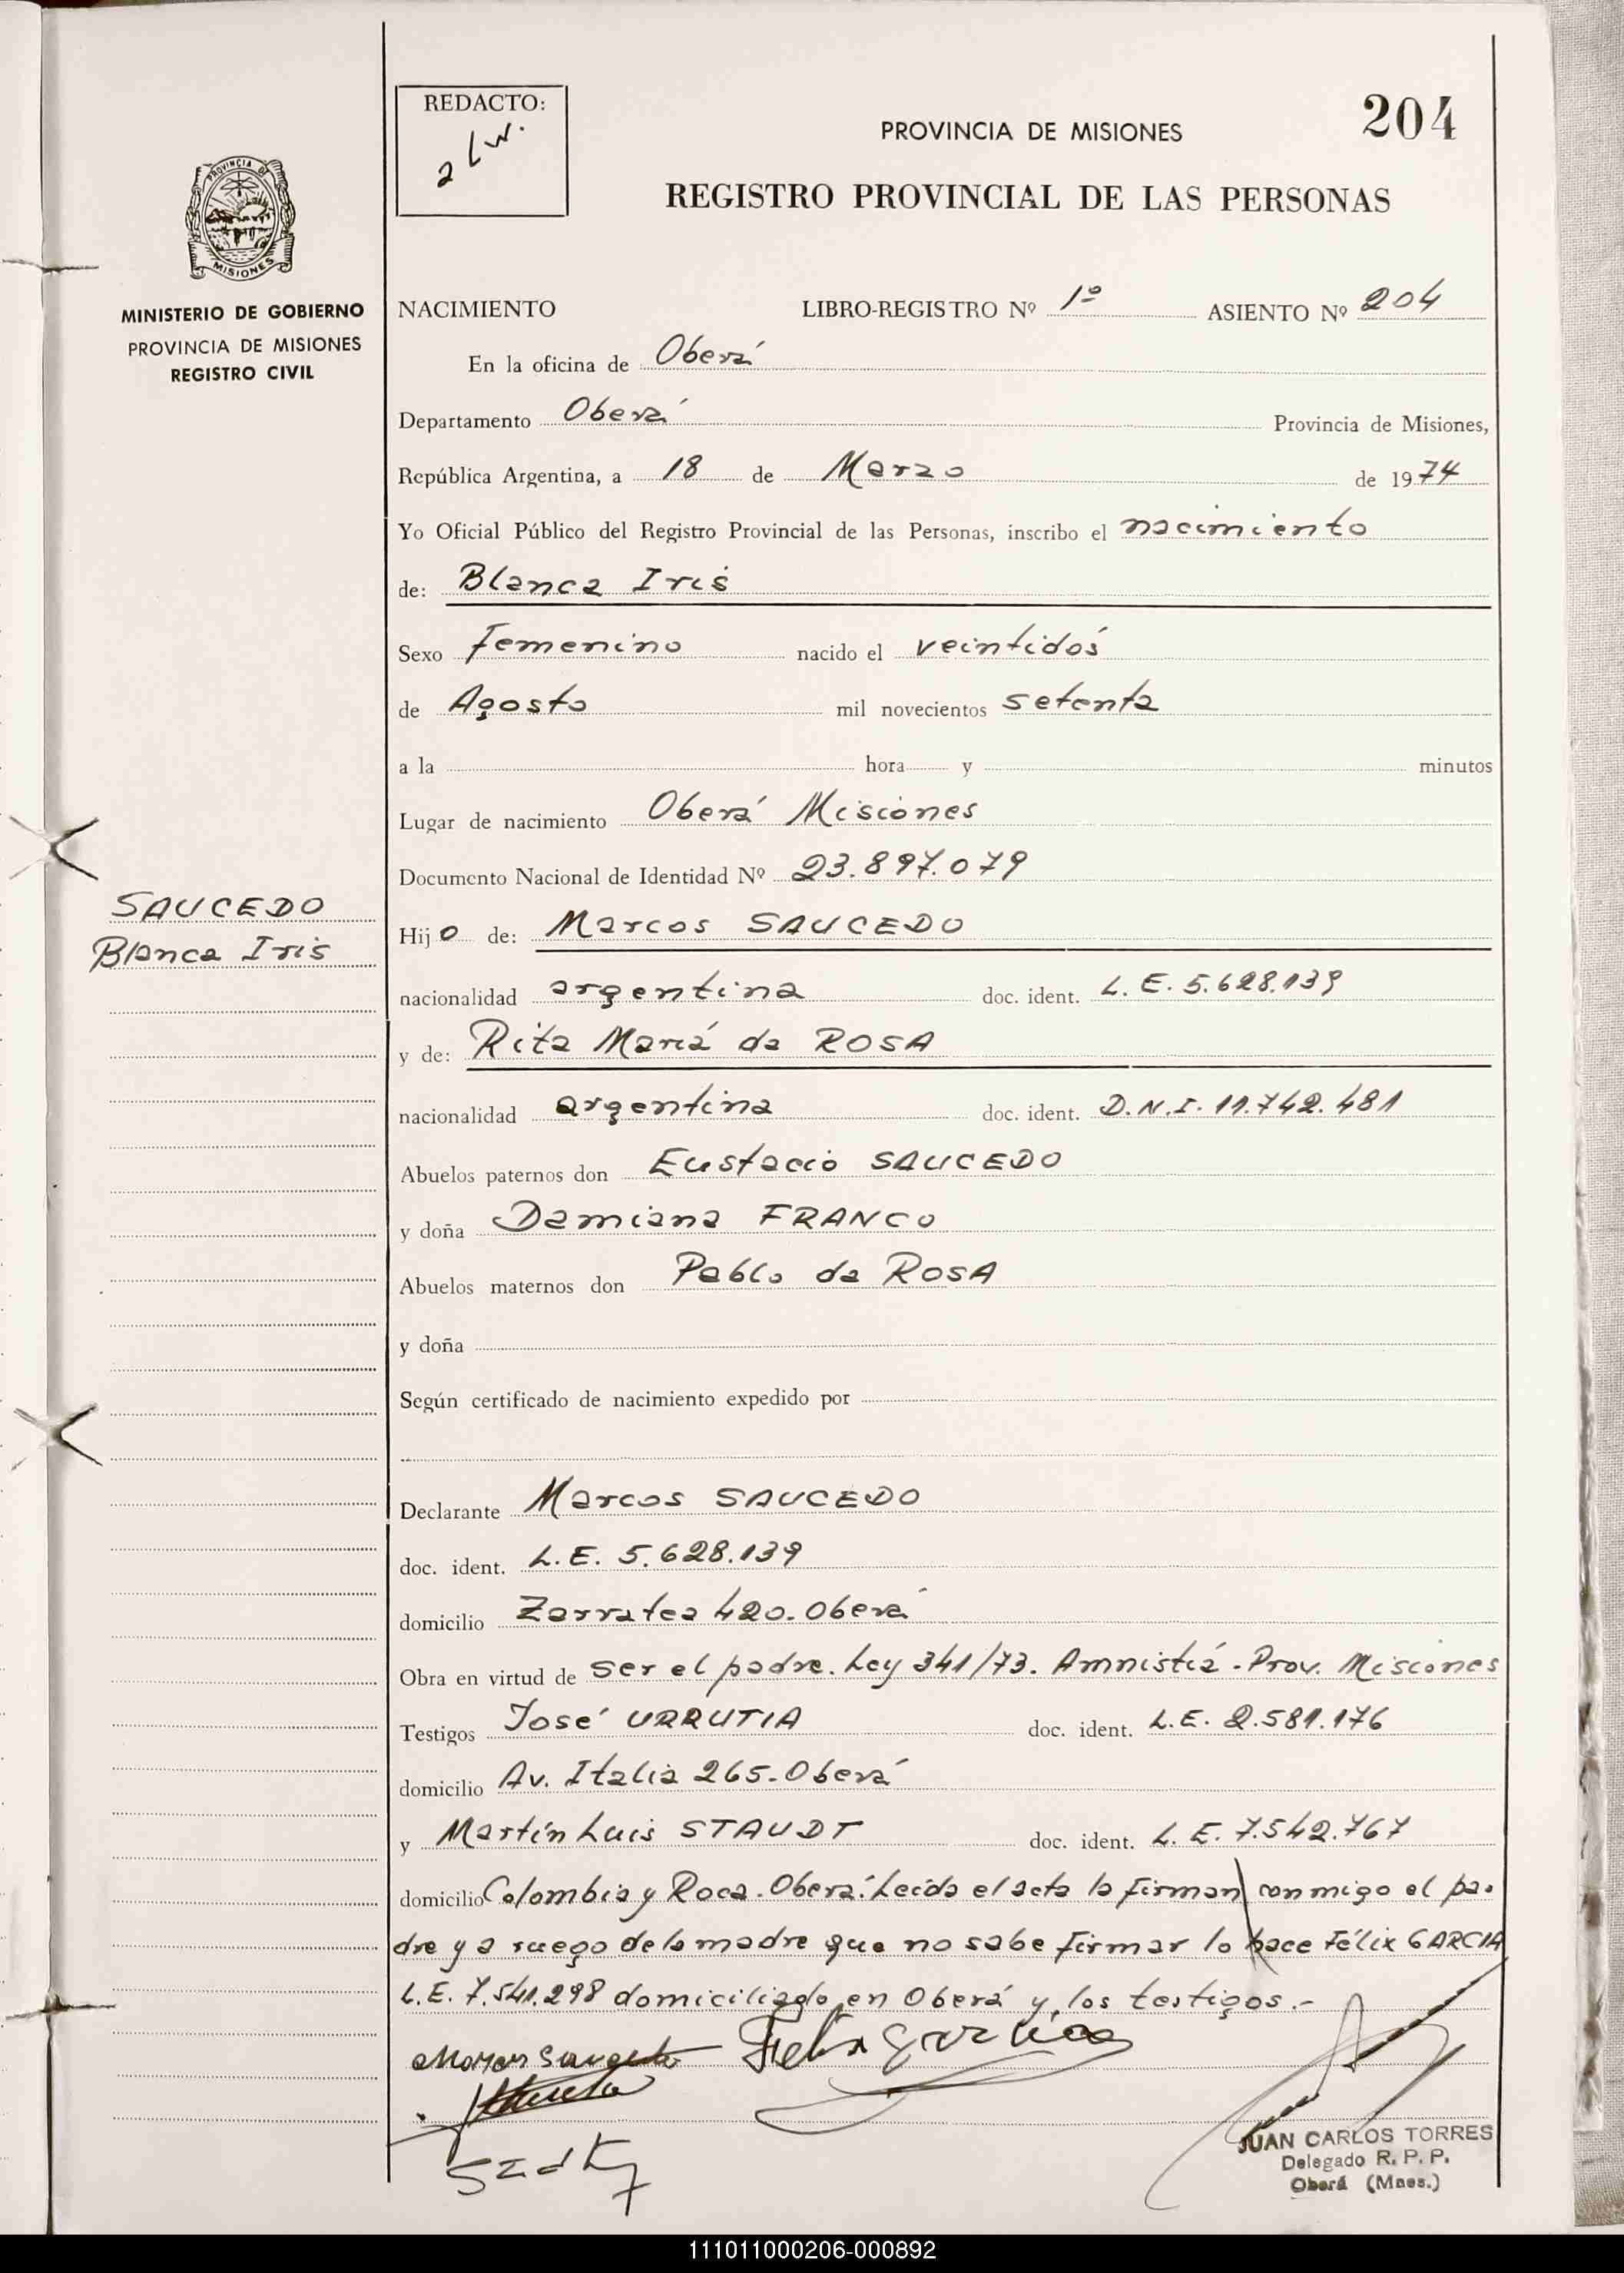 REDACTO:
204
PROVINCIA DE MISIONES
REGISTRO PROVINCIAL DE LAS PERSONAS
PROVINCIA DE
MISIONES
MINISTERIO DE GOBIERNO
PROVINCIA DE MISIONES
REGISTRO CIVIL
NACIMIENTO LIBRO-REGISTRO Nº 1º ASIENTO Nº 204
En la oficina de Oberá
Departamento Oberá Provincia de Misiones,
República Argentina, a 18 de Marzo de 1974
Yo Oficial Público del Registro Provincial de las Personas, inscribo el nacimiento
de: Blanca Iris
Sexo Femenino nacido el veintidós
de Agosto mil novecientos setenta
a la hora y minutos
Lugar de nacimiento Oberá Misiones
Documento Nacional de Identidad Nº 23.897.079
SAUCEDO
Blanca Iris
Hijo de: Marcos SAUCEDO
nacionalidad argentina doc. ident. L.E. 5.628.139
y de: Rita María da ROSA
nacionalidad argentina doc. ident. D.N.I. 11.742.481
Abuelos paternos don Eustacio SAUCEDO
y doña Damiana FRANCO
Abuelos maternos don Pablo da ROSA
y doña
Según certificado de nacimiento expedido por
Declarante Marcos SAUCEDO
doc. ident. L.E. 5.628.139
domicilio Zarratea 420. Oberá
Obra en virtud de ser el padre. Ley 341/73. Amnistía - Prov. Misiones
Testigos José URRUTIA doc. ident. L.E. 2.581.176
domicilio Av. Italia 265 - Oberá
y Martín Luis STAUDT doc. ident. L.E. 7.542.767
domicilio Colombia y Roca. Oberá. Leída el acta la firman conmigo el pa-
dre y a ruego de la madre que no sabe firmar lo hace Félix GARCIA
L.E. 7.541.298 domiciliado en Oberá y los testigos.-
Felix Garcia
JUAN CARLOS TORRES
Delegado R. P. P.
Oberá (Mnes.)
111011000206-000892